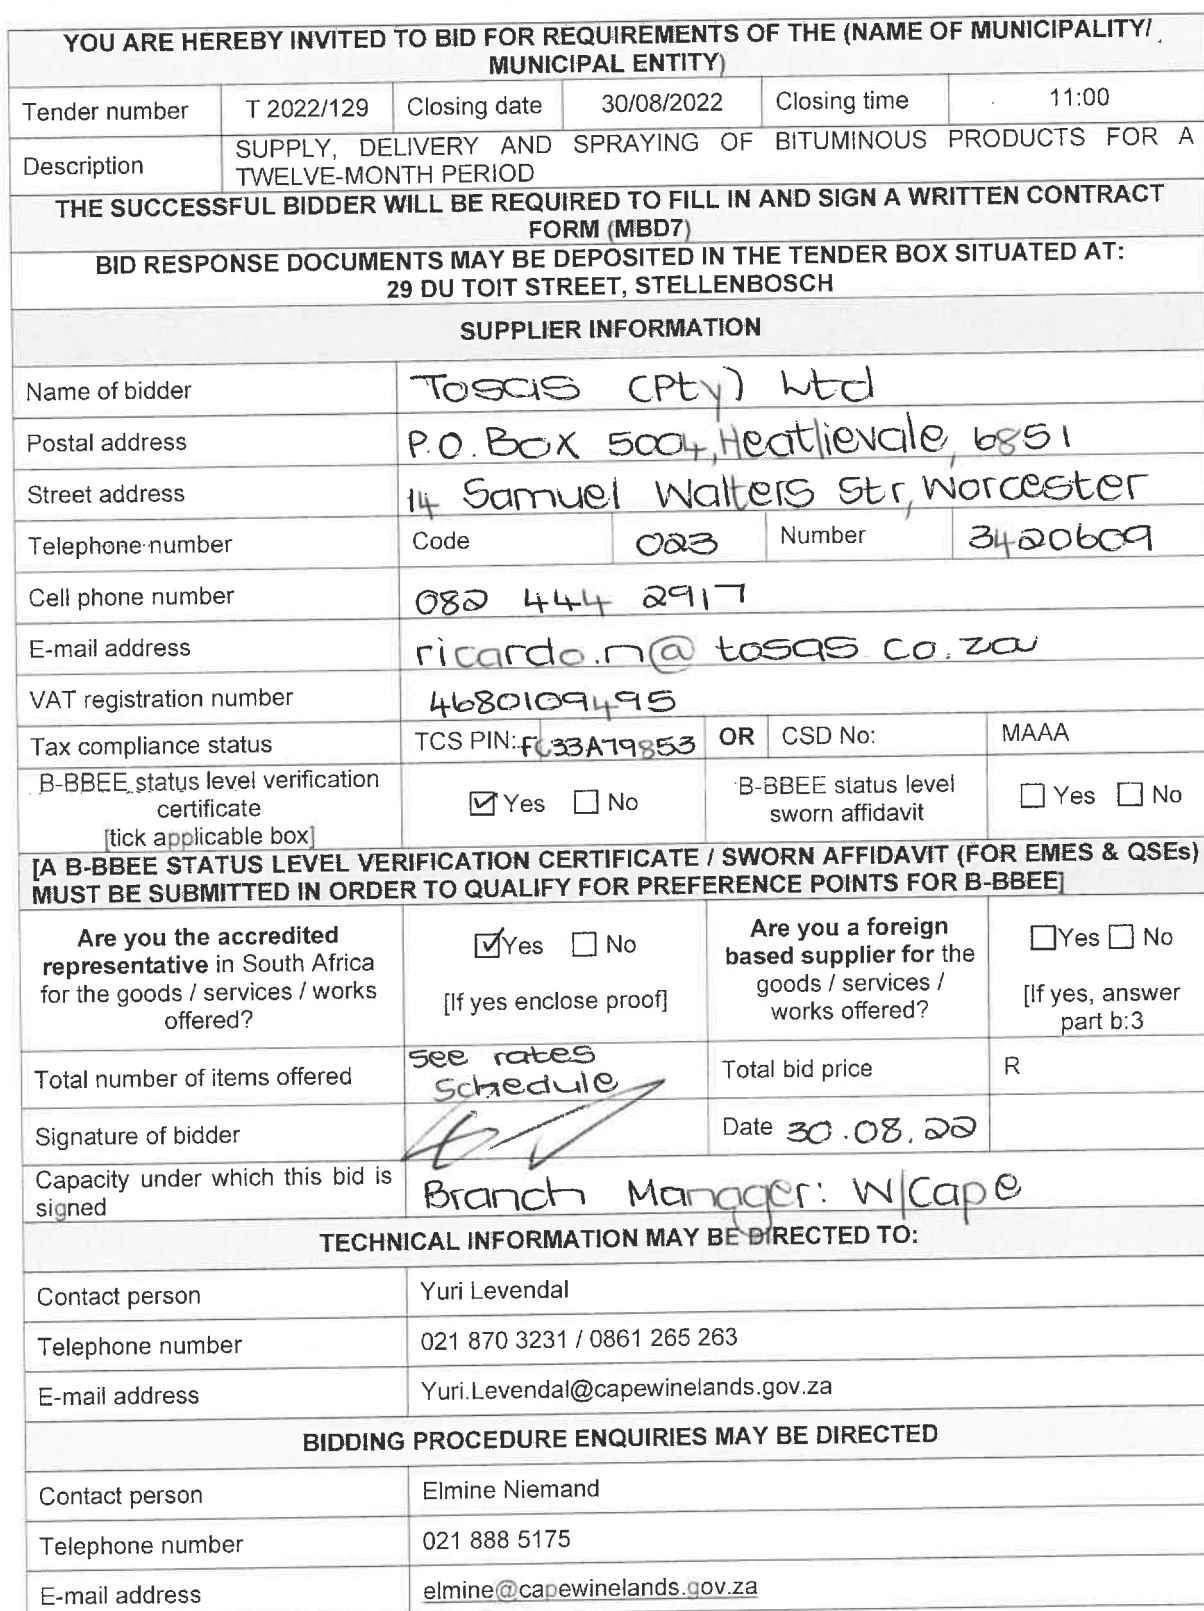 YOU ARE HEREBY INVITED TO BID FOR REQUIREMENTS OF THE (NAME OF MUNICIPALITY/
MUNICIPAL ENTITY)
Tender number T 2022/129 Closing date 30/08/2022 Closing time 11:00
Description SUPPLY, DELIVERY AND SPRAYING OF BITUMINOUS PRODUCTS FOR A
TWELVE-MONTH PERIOD
THE SUCCESSFUL BIDDER WILL BE REQUIRED TO FILL IN AND SIGN A WRITTEN CONTRACT
FORM (MBD7)
BID RESPONSE DOCUMENTS MAY BE DEPOSITED IN THE TENDER BOX SITUATED AT:
29 DU TOIT STREET, STELLENBOSCH
SUPPLIER INFORMATION
Name of bidder Tosas (Pty) Ltd
Postal address P.O. Box 5004, Heatlievale, 6851
Street address 14 Samuel Walters Str, Worcester
Telephone number Code 023 Number 3420609
Cell phone number 082 444 2917
E-mail address ricardo.n@tosas.co.za
VAT registration number 4680109495
Tax compliance status TCS PIN: FC33A79853 OR CSD No: MAAA
B-BBEE status level verification
certificate
[tick applicable box]
☑ Yes ☐ No
B-BBEE status level
sworn affidavit
☐ Yes ☐ No
[A B-BBEE STATUS LEVEL VERIFICATION CERTIFICATE / SWORN AFFIDAVIT (FOR EMES & QSEs)
MUST BE SUBMITTED IN ORDER TO QUALIFY FOR PREFERENCE POINTS FOR B-BBEE]
Are you the accredited
representative in South Africa
for the goods / services / works
offered?
☑Yes ☐ No
[If yes enclose proof]
Are you a foreign
based supplier for the
goods / services /
works offered?
☐Yes ☐ No
[If yes, answer
part b:3
Total number of items offered
See rates
Schedule
Total bid price R
Signature of bidder
Date 30.08.22
Capacity under which this bid is
signed
Branch Manager: W/Cape
TECHNICAL INFORMATION MAY BE DIRECTED TO:
Contact person Yuri Levendal
Telephone number 021 870 3231 / 0861 265 263
E-mail address Yuri.Levendal@capewinelands.gov.za
BIDDING PROCEDURE ENQUIRIES MAY BE DIRECTED
Contact person Elmine Niemand
Telephone number 021 888 5175
E-mail address elmine@capewinelands.gov.za